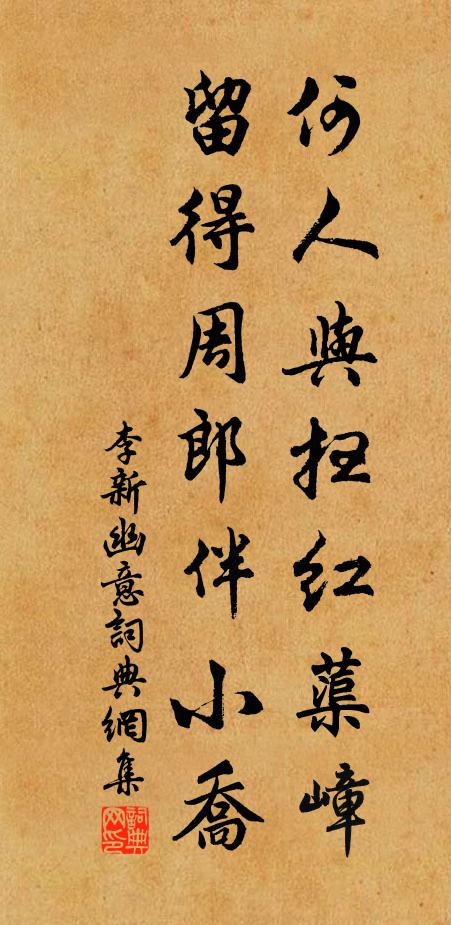 何人與紅蕖嶂
留得周郎伴小喬
李新幽意詞典網集
詞典網印